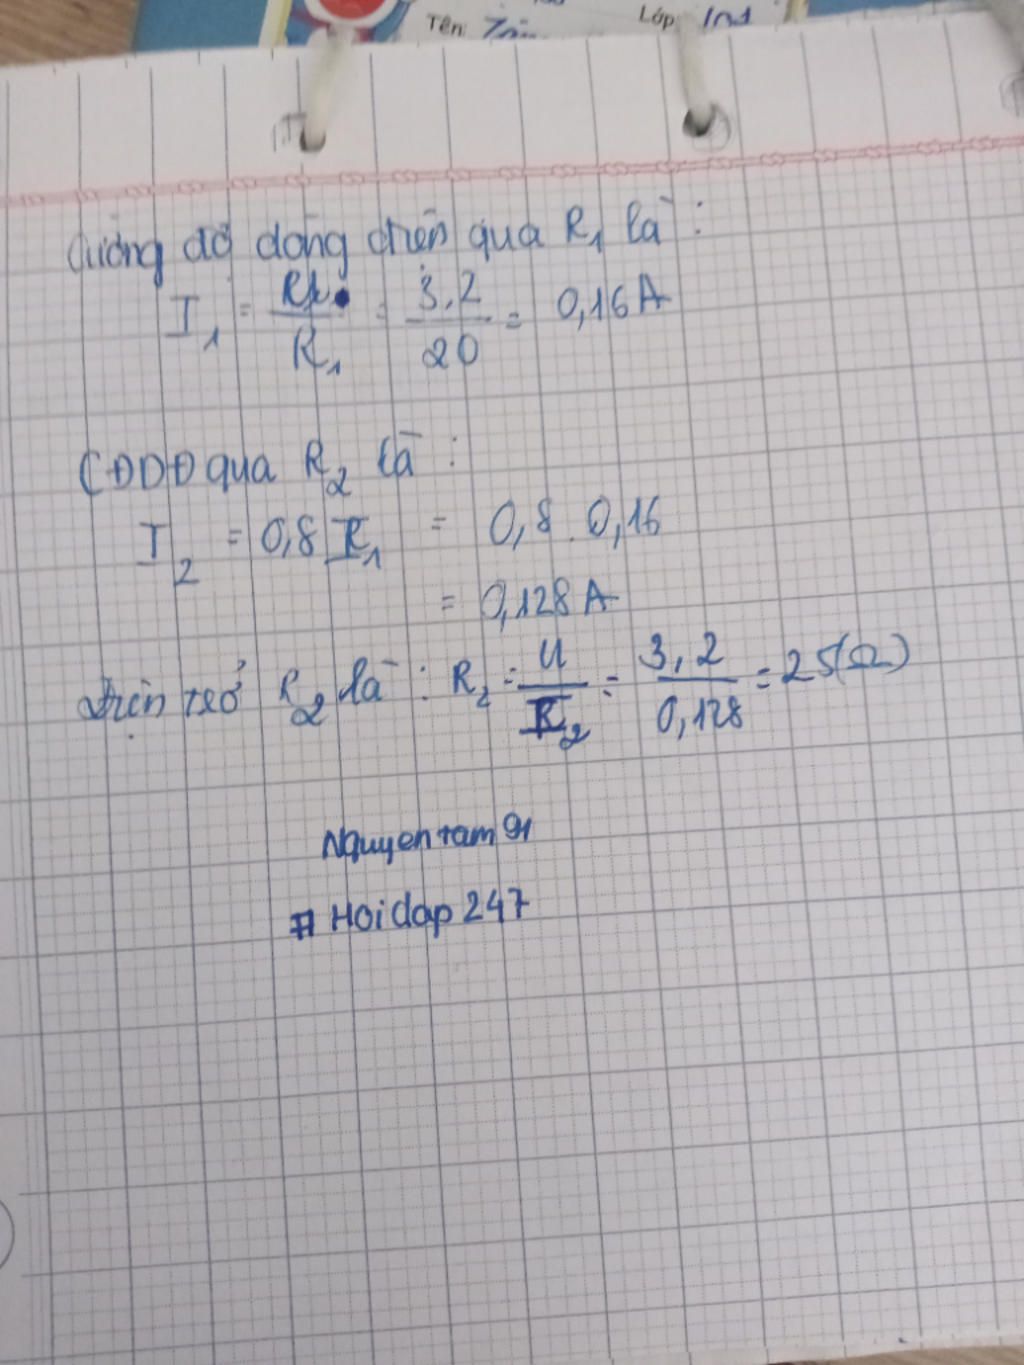 Tên: Lớp: 10A1
Cường độ dòng điện qua R1 là:
I1 = / R1 = 3,2 / 20 = 0,16A
CĐDĐ qua R2 là:
I2 = 0,8 I1 = 0,8 . 0,16
= 0,128 A
Điện trở R2 là: R2 = U / I2 = 3,2 / 0,128 = 25(Ω)
Nguyentam91
# Hoidap 247